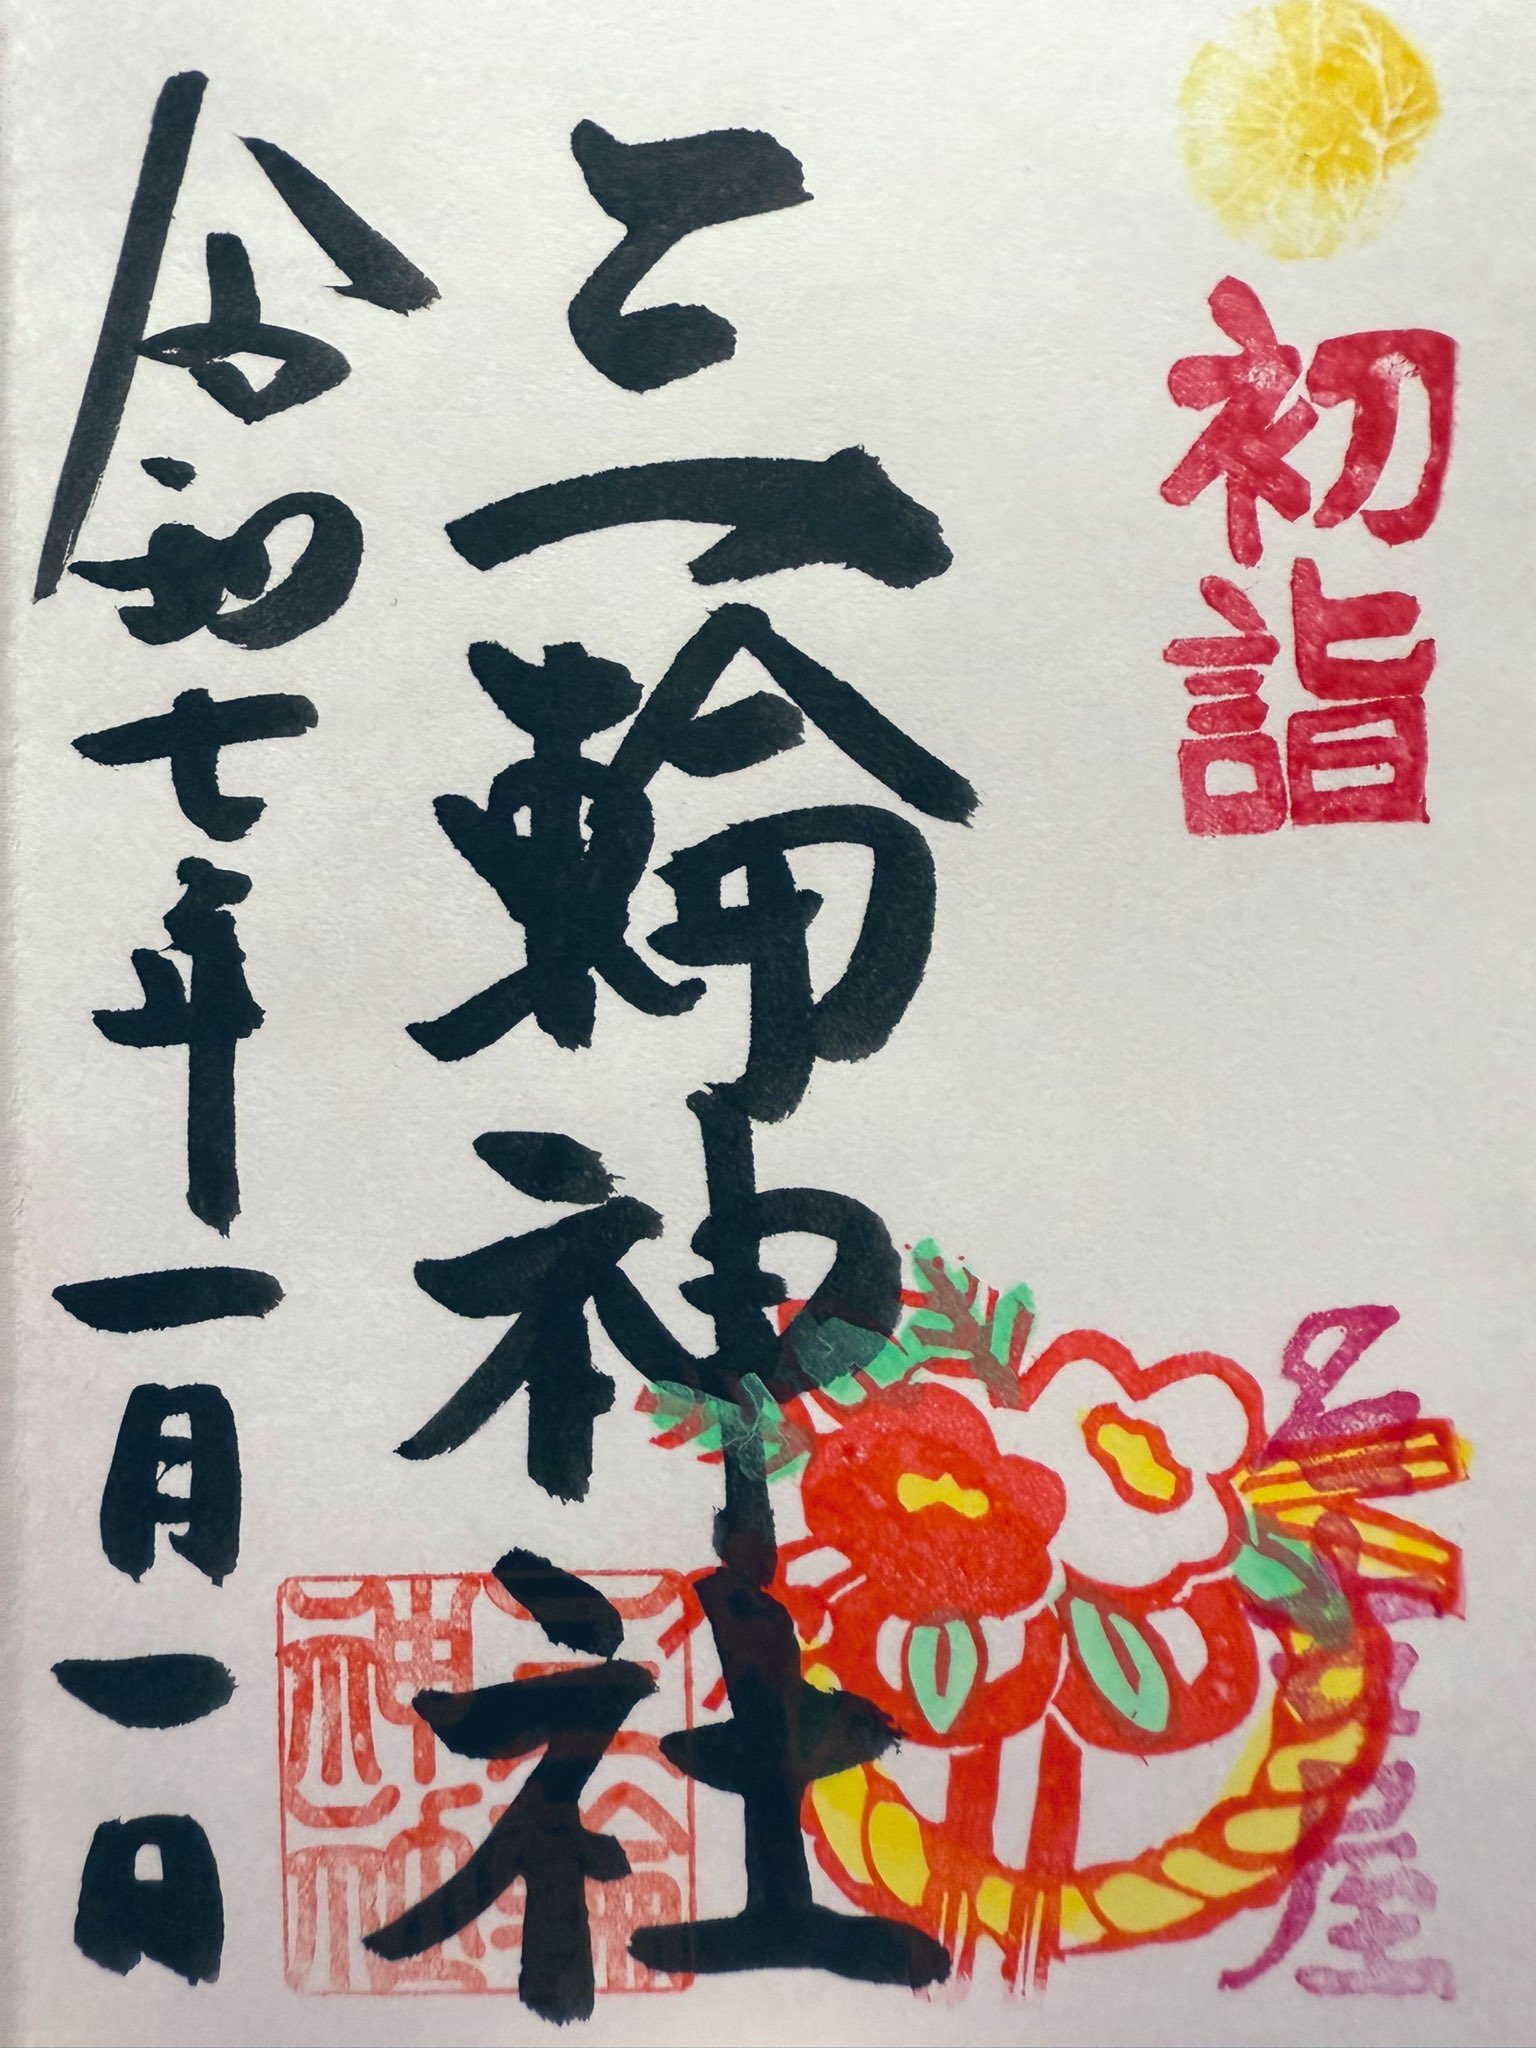 初詣
名古屋
三輪神社
三輪神社
令和七年一月一日